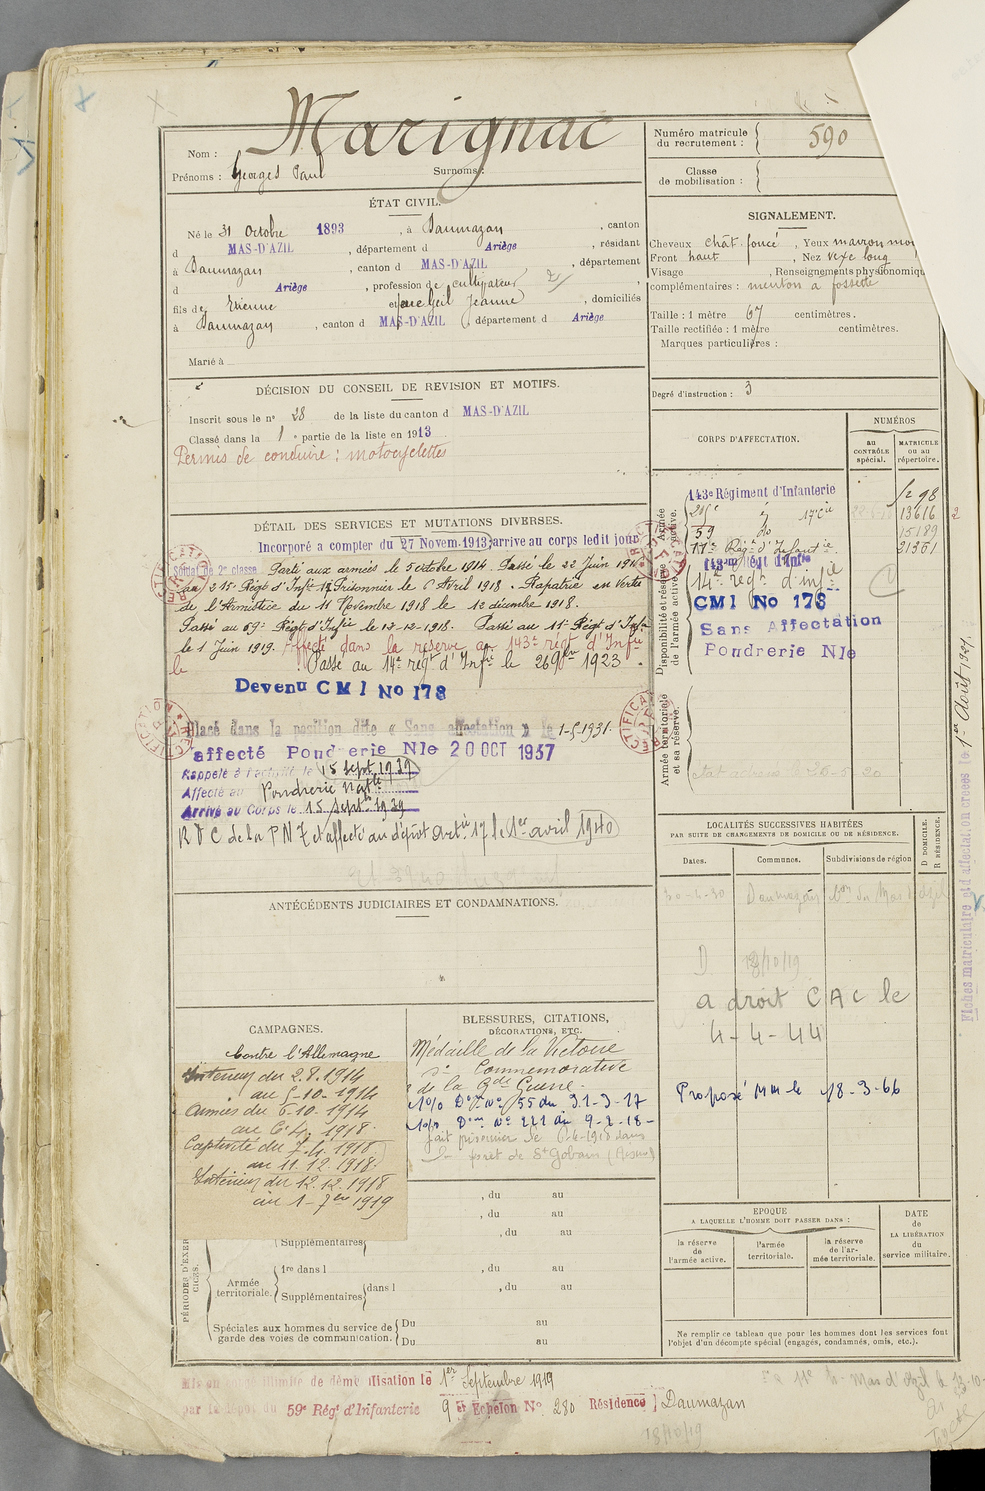 Marignac
Nom :
Prénoms : Georges Paul Surnoms :
Numéro matricule
du recrutement : 590
Classe
de mobilisation :
ÉTAT CIVIL.
Né le 31 Octobre 1893, à Daumazan, canton
d MAS-D'AZIL, département d Ariège, résidant
à Daumazan, canton d MAS-D'AZIL, département
d Ariège, profession de cultivateur
fils de Etienne et de Jeanne, domiciliés
à Daumazan, canton d MAS-D'AZIL, département d Ariège
Marié à
SIGNALEMENT.
Cheveux chât. foncé, Yeux marron
Front haut, Nez vexe long
Visage , Renseignements physionomiqu
complémentaires : menton à fossette
Taille : 1 mètre 67 centimètres.
Taille rectifiée : 1 mètre centimètres.
Marques particulières :
Degré d'instruction : 3
DÉCISION DU CONSEIL DE REVISION ET MOTIFS.
Inscrit sous le nº 28 de la liste du canton d MAS-D'AZIL
Classé dans la 1e partie de la liste en 1913
Permis de conduire : motocyclettes
DÉTAIL DES SERVICES ET MUTATIONS DIVERSES.
Incorporé à compter du 27 Novem. 1913; arrive au corps ledit jour
Soldat de 2e classe. Parti aux armées le 5 octobre 1914. Passé le 22 Juin 191
au 215e Régt d'Infie Prisonnier le 6 Avril 1918. Rapatrié en vertu
de l'Armistice du 11 Novembre 1918 le 12 décembre 1918.
Passé au 59e Régt d'Infie le 12-12-1918. Passé au 11e Régt d'Infie
le 1 Juin 1919. Affecté dans la réserve au 143e régt d'Infie
le Passé au 14e régt d'Infie le 1923.
Devenu CMI No 178
Placé dans la position dite « Sans affectation » le 1-5-1931.
affecté Poudrerie Nle 20 OCT 1937
Rappelé à l'activité le 15 Sept 1939
Affecté au Poudrerie Natle
Arrivé au Corps le 15 Septbre 1939
RDC de la PN et affecté au dépôt Artie 17 le 1er avril 1940
CORPS D'AFFECTATION.
NUMÉROS
au
CONTRÔLE
spécial.
MATRICULE
ou au
répertoire.
Armée
active.
Disponibilité et réserve
de l'armée active.
Armée territoriale
et sa réserve.
143e Régiment d'Infanterie 98
215e 13616
59 do 15189
11e Régt d'Infantie. 21351
14e régt d'infie
CMI No 178
Sans Affectation
Poudrerie Nle
Fiches matriculaire et d'affectation créées le 1er Août 1921.
ANTÉCÉDENTS JUDICIAIRES ET CONDAMNATIONS.
LOCALITÉS SUCCESSIVES HABITÉES
PAR SUITE DE CHANGEMENTS DE DOMICILE OU DE RÉSIDENCE.
Dates. Communes. Subdivisions de région
D DOMICILE.
R RÉSIDENCE.
Daumazan
D 18/10/19
a droit CAC le
4-4-44
Proposé MM le 18-3-66
CAMPAGNES.
Contre l'Allemagne
Intérieur du 2.8.1914
au 5-10-1914
Armées du 6-10-1914
au 6.4.1918.
Captivité du 7.4.1918.
au 11.12.1918.
Intérieur du 12.12.1918
BLESSURES, CITATIONS,
DÉCORATIONS, ETC.
Médaille de la Victoire
do Commémorative
de la Gde Guerre.
10% Don no 55 du 31-3-17
10% Don no 221 du 9-2-18
fait prisonnier le 6-4-1918 dans
la forêt de St Gobain (Aisne)
PÉRIODES D'EXER
CICES.
, du au
, du au
Supplémentaires , du au
Armée
territoriale.
1re dans l , du au
Supplémentaires dans l , du au
Spéciales aux hommes du service de
garde des voies de communication.
Du au
Du au
EPOQUE
A LAQUELLE L'HOMME DOIT PASSER DANS :
la réserve
de
l'armée active.
l'armée
territoriale.
la réserve
de l'ar-
mée territoriale.
DATE
de
LA LIBÉRATION
du
service militaire.
Ne remplir ce tableau que pour les hommes dont les services font
l'objet d'un décompte spécial (engagés, condamnés, omis, etc.).
Mis en congé illimité de démobilisation le 1er Septembre 1919
par le dépôt du 59e Rég. d'Infanterie 9e Echelon No 280 Résidence Daumazan
18/10/19